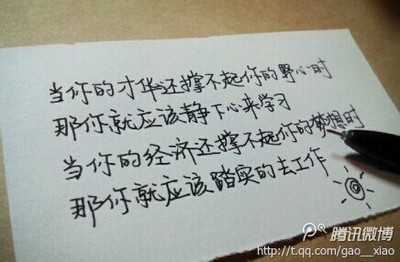 当你的才华还撑不起你的野心时
那你就应该静下心来学习
当你的经济还撑不起你的梦想时
那你就应该踏实的去工作
腾讯微博
http://t.qq.com/gao__xiao